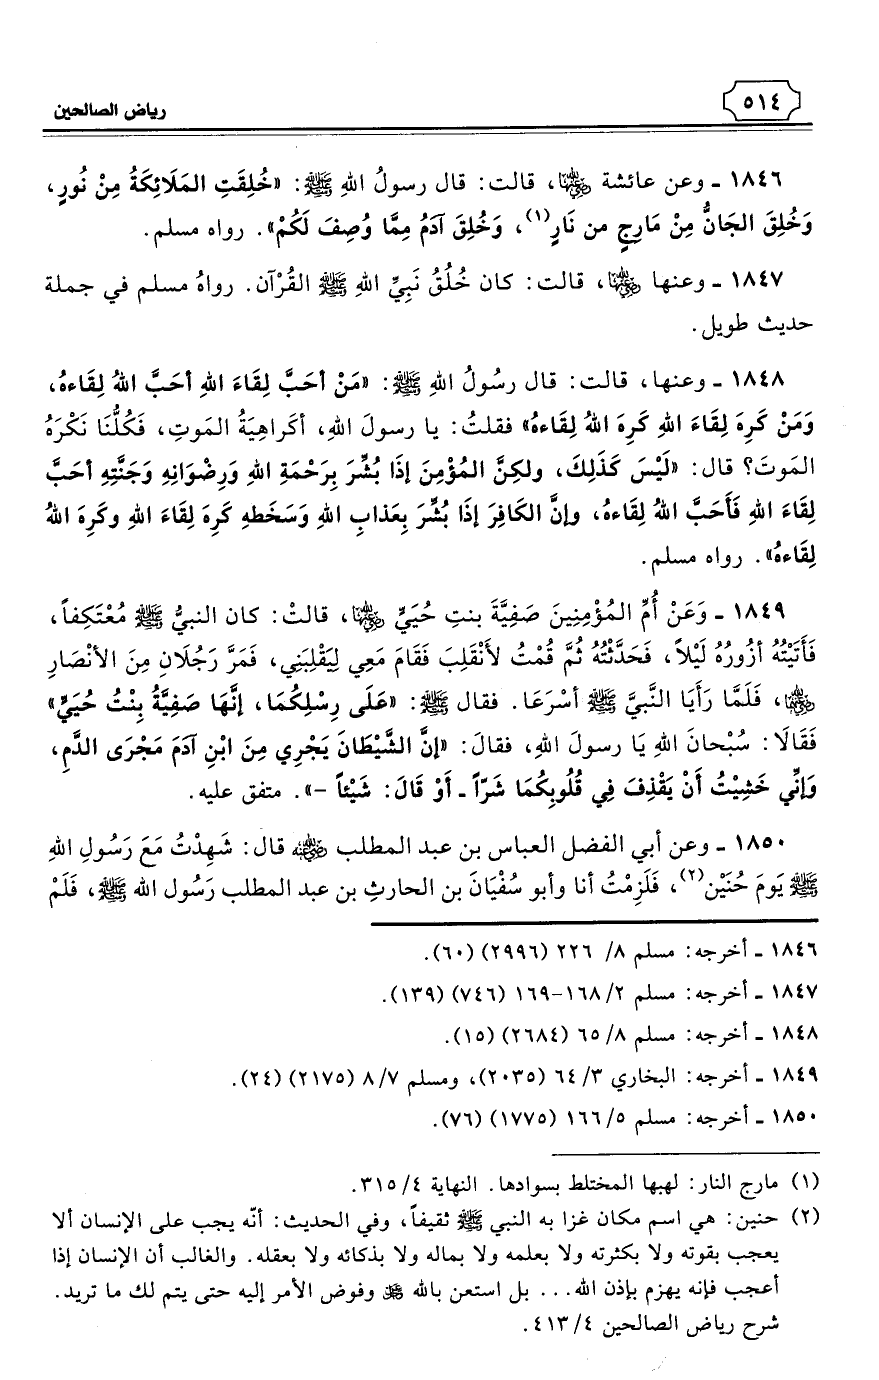 ٥١٤
رياض الصالحين
١٨٤٦ ـ وعن عائشة رضي الله عنها، قالت: قال رسولُ اللهِ ﷺ: «خُلِقَتِ المَلَائِكَةُ مِنْ نُورٍ،
وَخُلِقَ الجَانُّ مِنْ مَارِجٍ من نَارٍ(١)، وَخُلِقَ آدَمُ مِمَّا وُصِفَ لَكُمْ». رواه مسلم.
١٨٤٧ ـ وعنها رضي الله عنها، قالت: كان خُلُقُ نَبِيِّ اللهِ ﷺ القُرْآن. رواهُ مسلم في جملة
حديث طويل.
١٨٤٨ ـ وعنها، قالت: قال رسُولُ اللهِ ﷺ: «مَنْ أحَبَّ لِقَاءَ اللهِ أحَبَّ اللهُ لِقَاءهُ،
وَمَنْ كَرِهَ لِقَاءَ اللهِ كَرِهَ اللهُ لِقَاءهُ» فقلتُ: يا رسولَ اللهِ، أكَراهِيَةُ المَوتِ، فَكُلُّنَا نَكْرَهُ
المَوتَ؟ قال: «لَيْسَ كَذَلِكَ، ولكِنَّ المُؤْمِنَ إذَا بُشِّرَ بِرَحْمَةِ اللهِ وَرِضْوَانِهِ وَجَنَّتِهِ أحَبَّ
لِقَاءَ اللهِ فَأَحَبَّ اللهُ لِقَاءهُ، وإنَّ الكَافِرَ إذَا بُشِّرَ بِعَذابِ اللهِ وَسَخَطهِ كَرِهَ لِقَاءَ اللهِ وكَرِهَ اللهُ
لِقَاءهُ». رواه مسلم.
١٨٤٩ ـ وَعَنْ أُمِّ المُؤْمِنِينَ صَفِيَّةَ بنتِ حُيَيٍّ رضي الله عنها، قالتْ: كان النبيُّ ﷺ مُعْتَكِفاً،
فَأَتَيْتُهُ أزُورُهُ لَيْلاً، فَحَدَّثْتُهُ ثُمَّ قُمْتُ لأَنْقَلِبَ فَقَامَ مَعِي لِيَقْلِبَنِي، فَمَرَّ رَجُلَانِ مِنَ الأنْصَارِ
رضي الله عنهما، فَلَمَّا رَأَيَا النَّبِيَّ ﷺ أسْرَعَا. فقال ﷺ: «عَلَى رِسْلِكُمَا، إنَّهَا صَفِيَّةُ بِنْتُ حُيَيٍّ»
فَقَالَا: سُبْحانَ اللهِ يَا رسولَ اللهِ، فقالَ: «إنَّ الشَّيْطَانَ يَجْرِي مِنَ ابْنِ آدَمَ مَجْرَى الدَّمِ،
وَإنِّي خَشِيْتُ أنْ يَقْذِفَ فِي قُلُوبِكُمَا شَرّاً ـ أَوْ قَالَ: شَيْئاً –». متفق عليه.
١٨٥٠ ـ وعن أبي الفضل العباس بن عبد المطلب رضي الله عنه قال: شَهِدْتُ مَعَ رَسُولِ اللهِ
ﷺ يَومَ حُنَيْن(٢)، فَلَزِمْتُ أنا وأبو سُفْيَانَ بن الحارثِ بن عبد المطلب رَسُول الله ﷺ، فَلَمْ
١٨٤٦ ـ أخرجه: مسلم ٨/ ٢٢٦ (٢٩٩٦) (٦٠).
١٨٤٧ ـ أخرجه: مسلم ١٦٨/٢–١٦٩ (٧٤٦) (١٣٩).
١٨٤٨ ـ أخرجه: مسلم ٦٥/٨ (٢٦٨٤) (١٥).
١٨٤٩ ـ أخرجه: البخاري ٣/ ٦٤ (٢٠٣٥)، ومسلم ٨/٧ (٢١٧٥) (٢٤).
١٨٥٠ ـ أخرجه: مسلم ١٦٦/٥ (١٧٧٥) (٧٦).
(١) مارج النار: لهبها المختلط بسوادها. النهاية ٣١٥/٤.
(٢) حنين: هي اسم مكان غزا به النبي ﷺ ثقيفاً، وفي الحديث: أنّه يجب على الإنسان ألا
يعجب بقوته ولا بكثرته ولا بعلمه ولا بماله ولا بذكائه ولا بعقله. والغالب أن الإنسان إذا
أعجب فإنه يهزم بإذن الله... بل استعن بالله عز وجل وفوض الأمر إليه حتى يتم لك ما تريد.
شرح رياض الصالحين ٤١٣/٤.